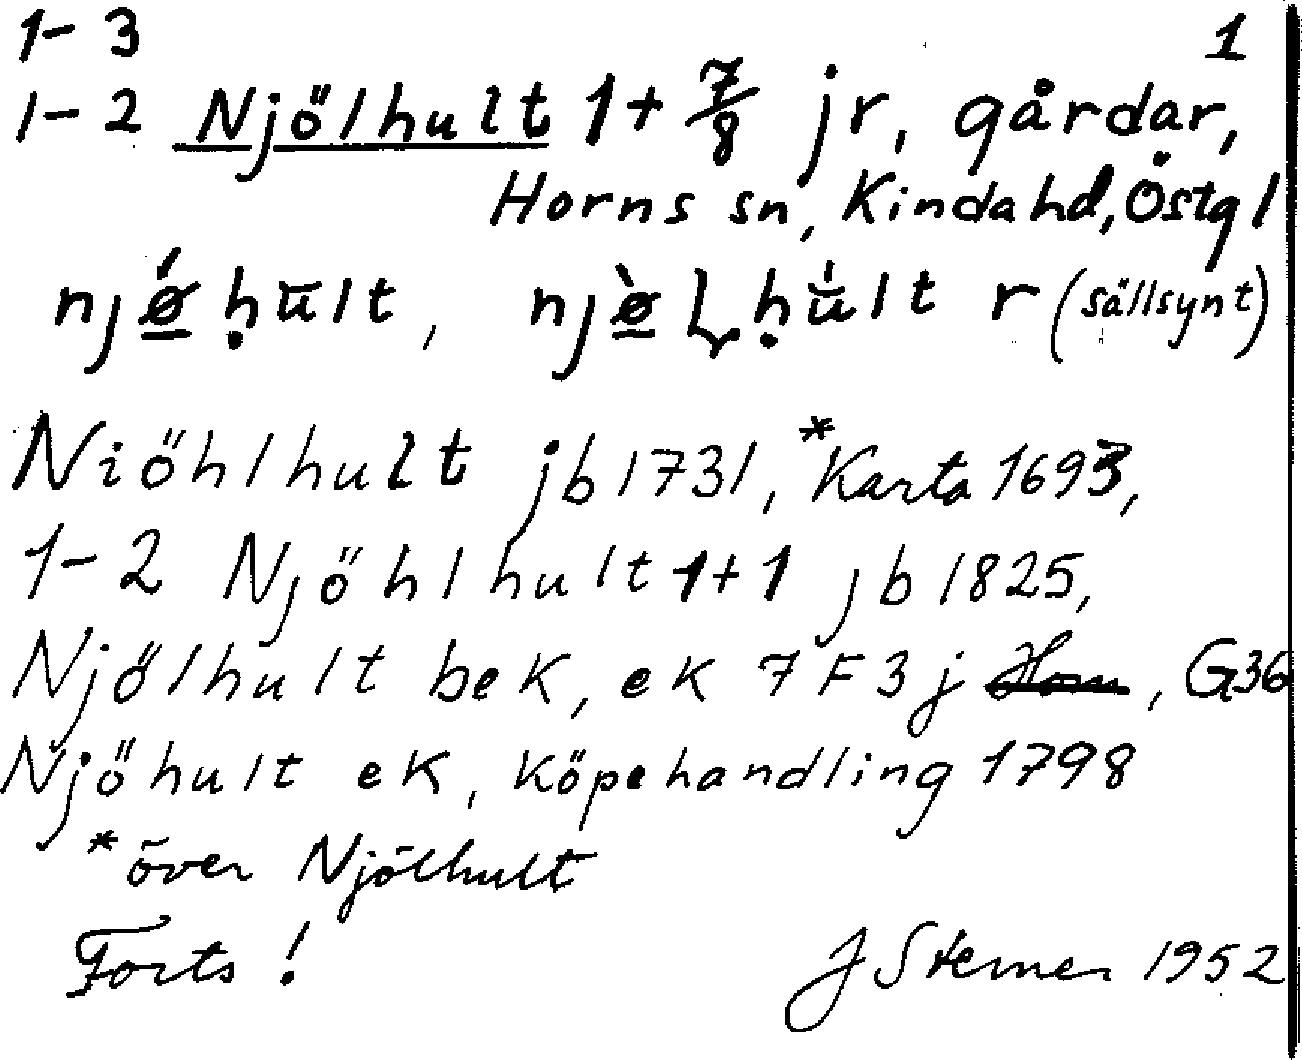 1-3 1
1-2 Njölhult 1+7/8 jr, gårdar,
Horns sn, Kindahd, Östgl
njǿ̲ḥūlt, njø̲̀Lḥū̍lt r (sällsynt)
Niöhlhult jb 1731, *Karta 1693,
1-2 Njöhlhult 1+1 jb 1825,
Njölhult bek, ek 7F3j Horn, G36
Njöhult ek, köpehandling 1798
*över Njölhult
Forts! J Sterner 1952